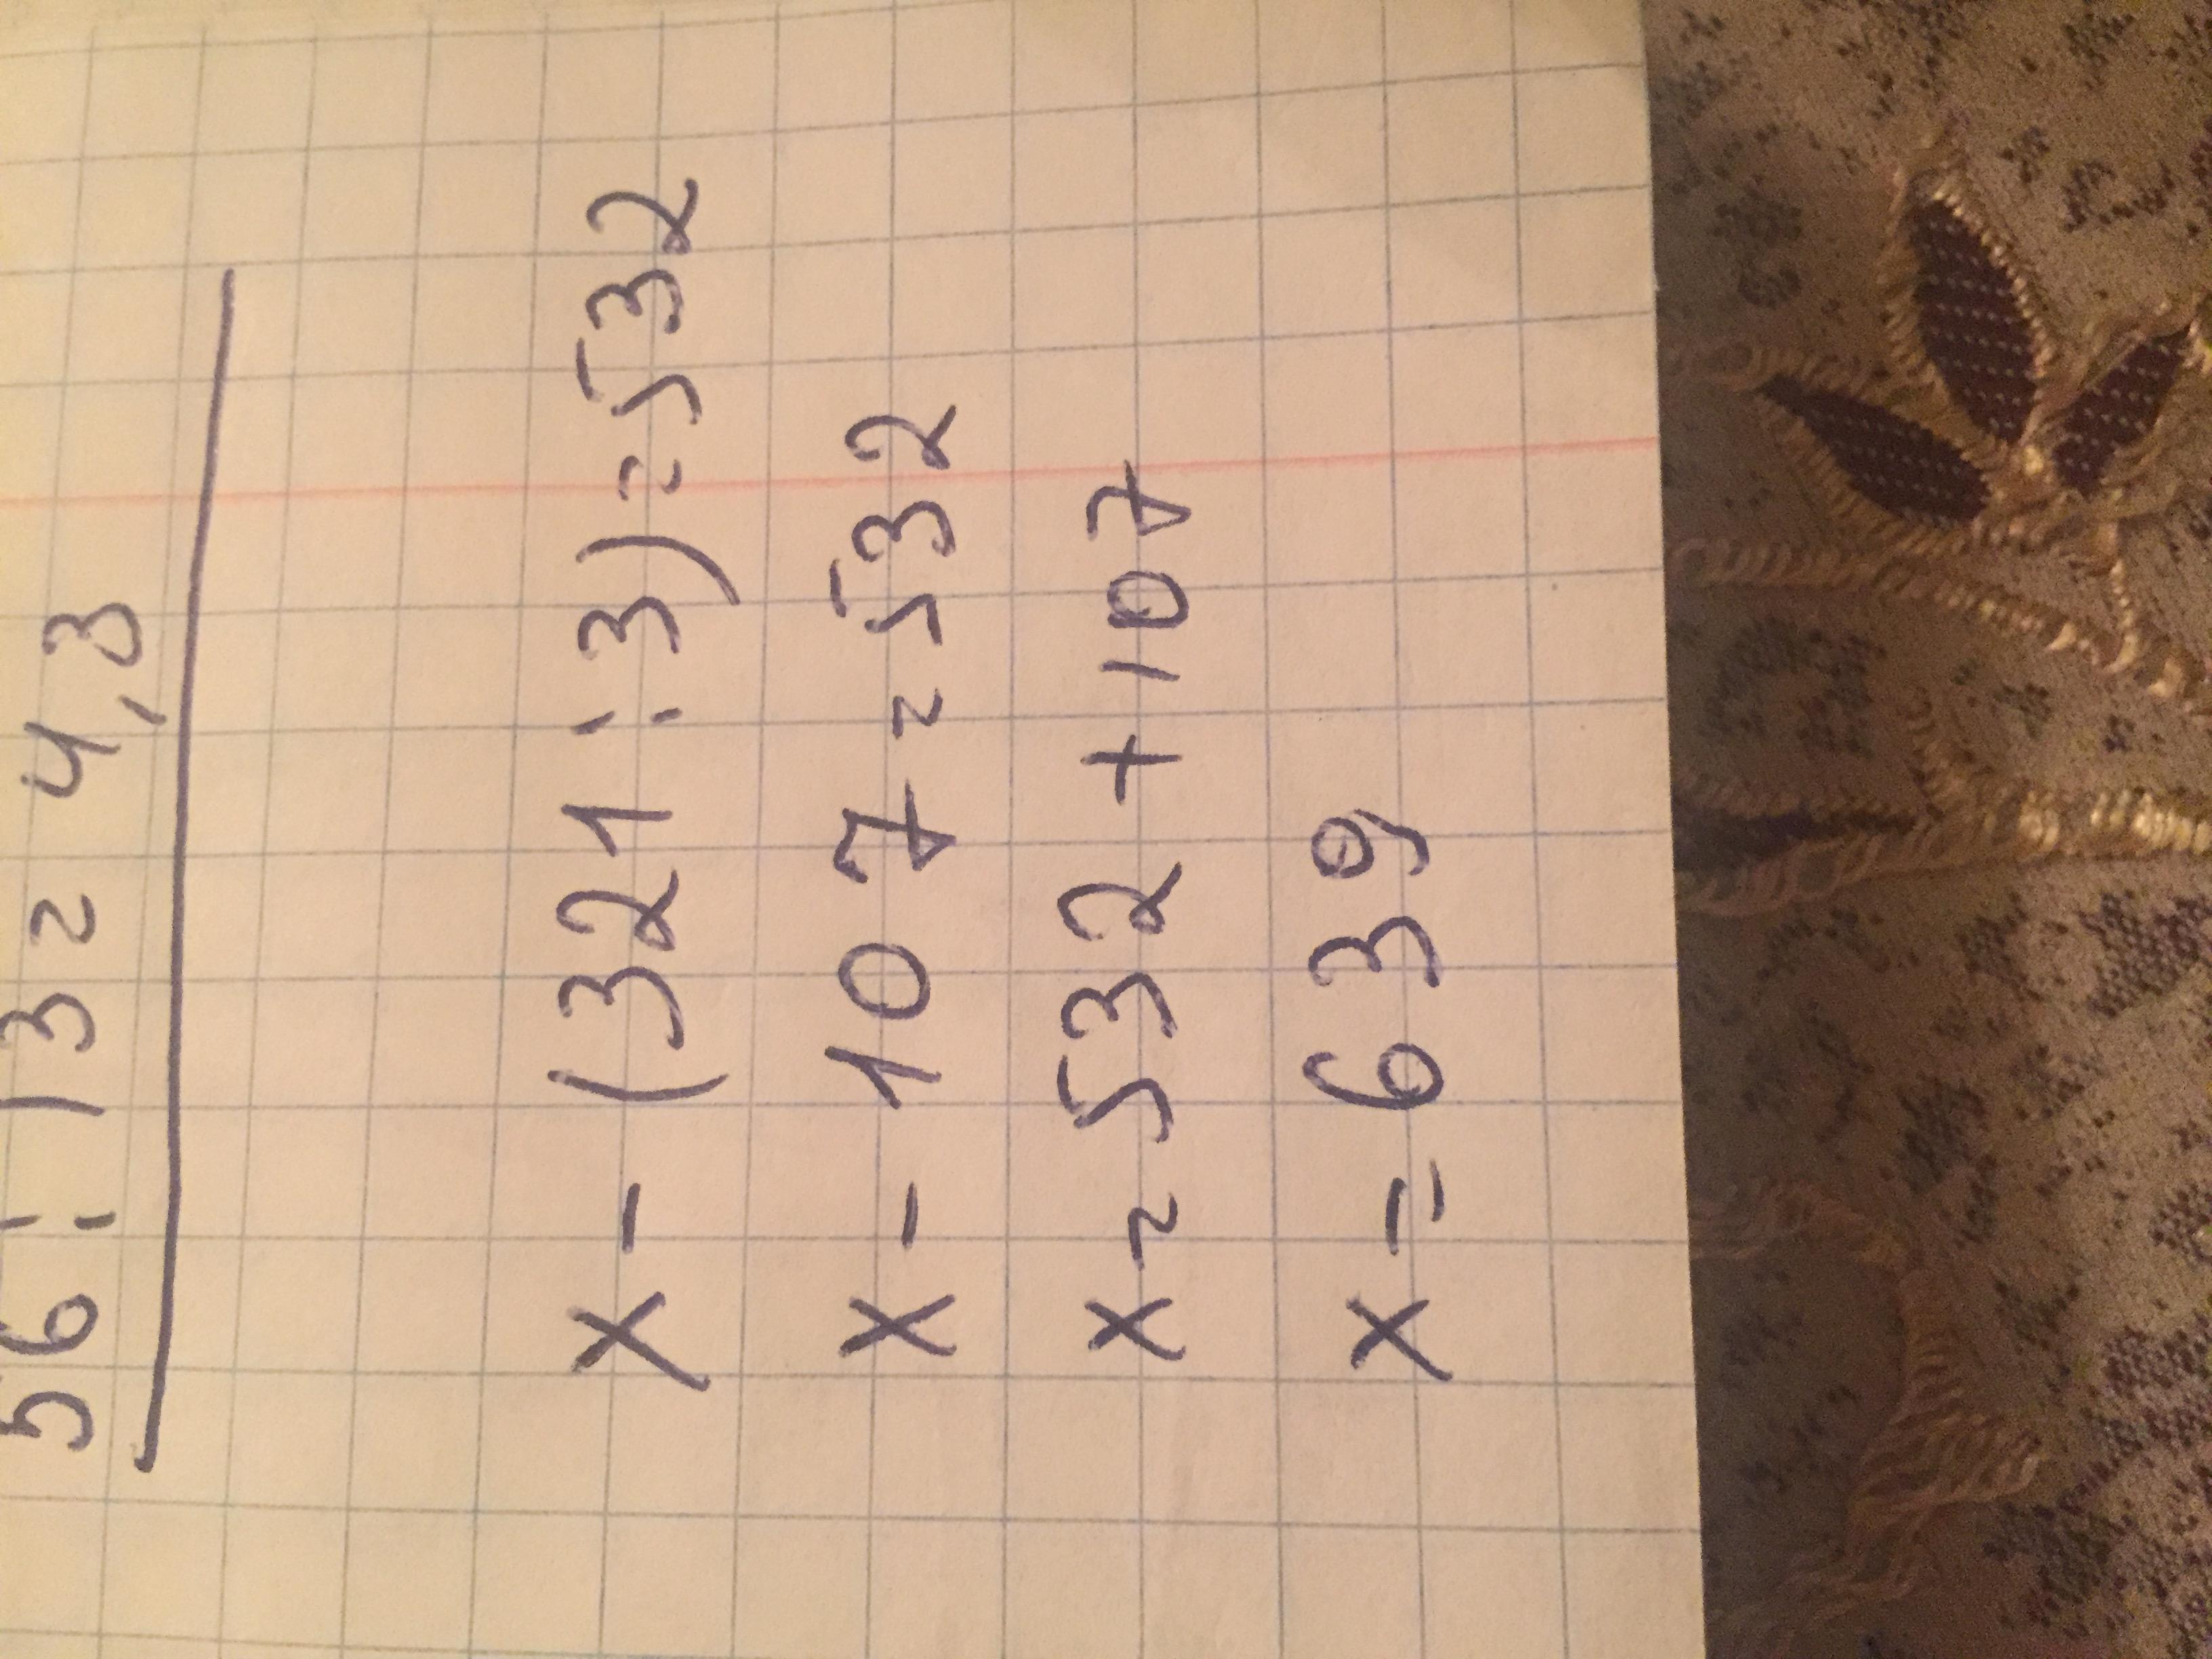 56 : 13 = 4,3
x - (321 : 3) = 532
x - 107 = 532
x = 532 + 107
x = 639